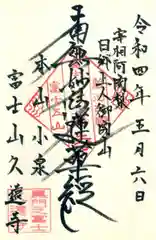 令和四年五月六日
宗祖阿闍梨
日郷上人御開山
南無妙法蓮華経
本山小泉
富士山久遠寺